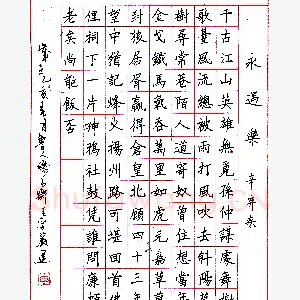 永遇樂 辛弃疾
千古江山英雄無覓孫仲謀處舞榭
歌臺風流總被雨打風吹去斜陽草
樹尋常巷陌人道寄奴曾住想當年
金戈鐵馬氣吞萬里如虎元嘉草
封狼居胥贏得倉皇北顧四十三年
望中猶記烽火揚州路可堪回首
狸祠下一片神鴉社鼓憑誰問廉頗
老矣尚能飯否